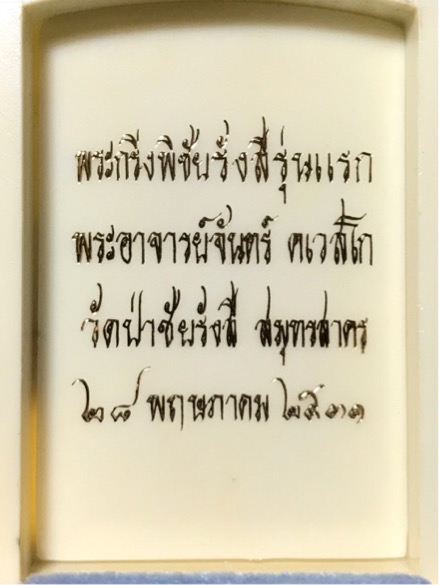 พระกริ่งพิชัยรังสีรุ่นแรก
พระอาจารย์จันทร์ คเวสโก
วัดป่าชัยรังสี สมุทรสาคร
๒๘ พฤษภาคม